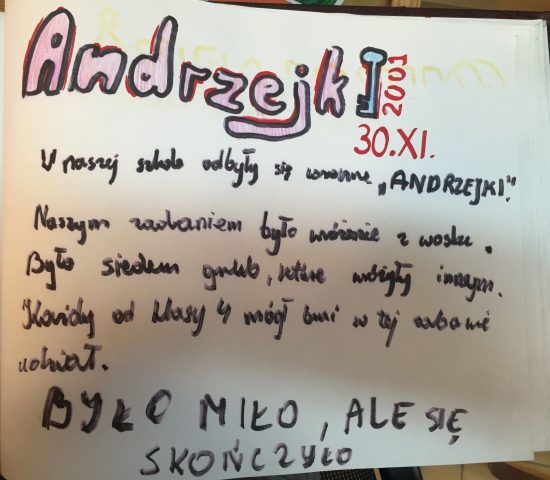 Andrzejki
2001
30.XI.
W naszej szkole odbyły się "ANDRZEJKI".
Naszym zadaniem było wróżenie z wosku.
Było siedem grub, które wóżyły innym.
Każdy od klasy 4 mógł brać w tej zabawie
udział.
BYŁO MIŁO, ALE SIĘ
SKOŃCZYŁO